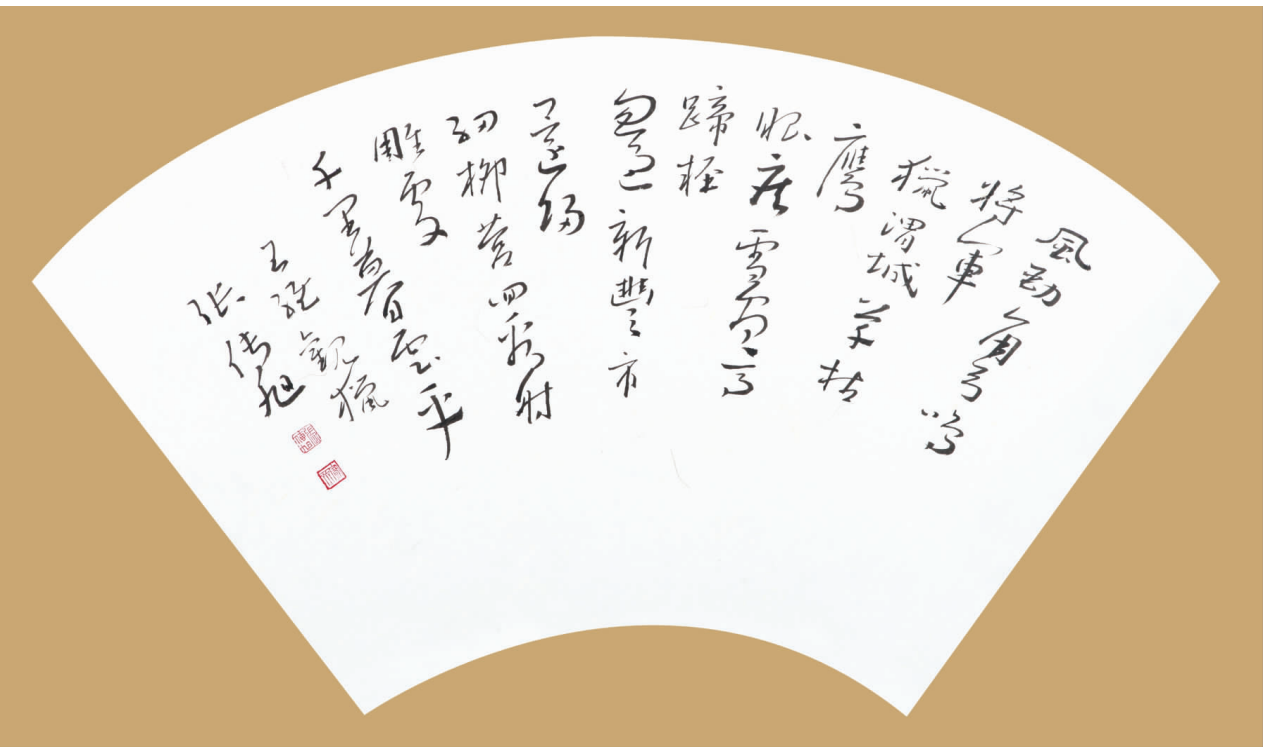 風勁角弓鳴
將軍
獵渭城草枯
鷹
眼疾雪盡馬
蹄輕
忽過新豐市
還歸
細柳營回看射
雕處
千里暮雲平
王維觀獵
張傳旭